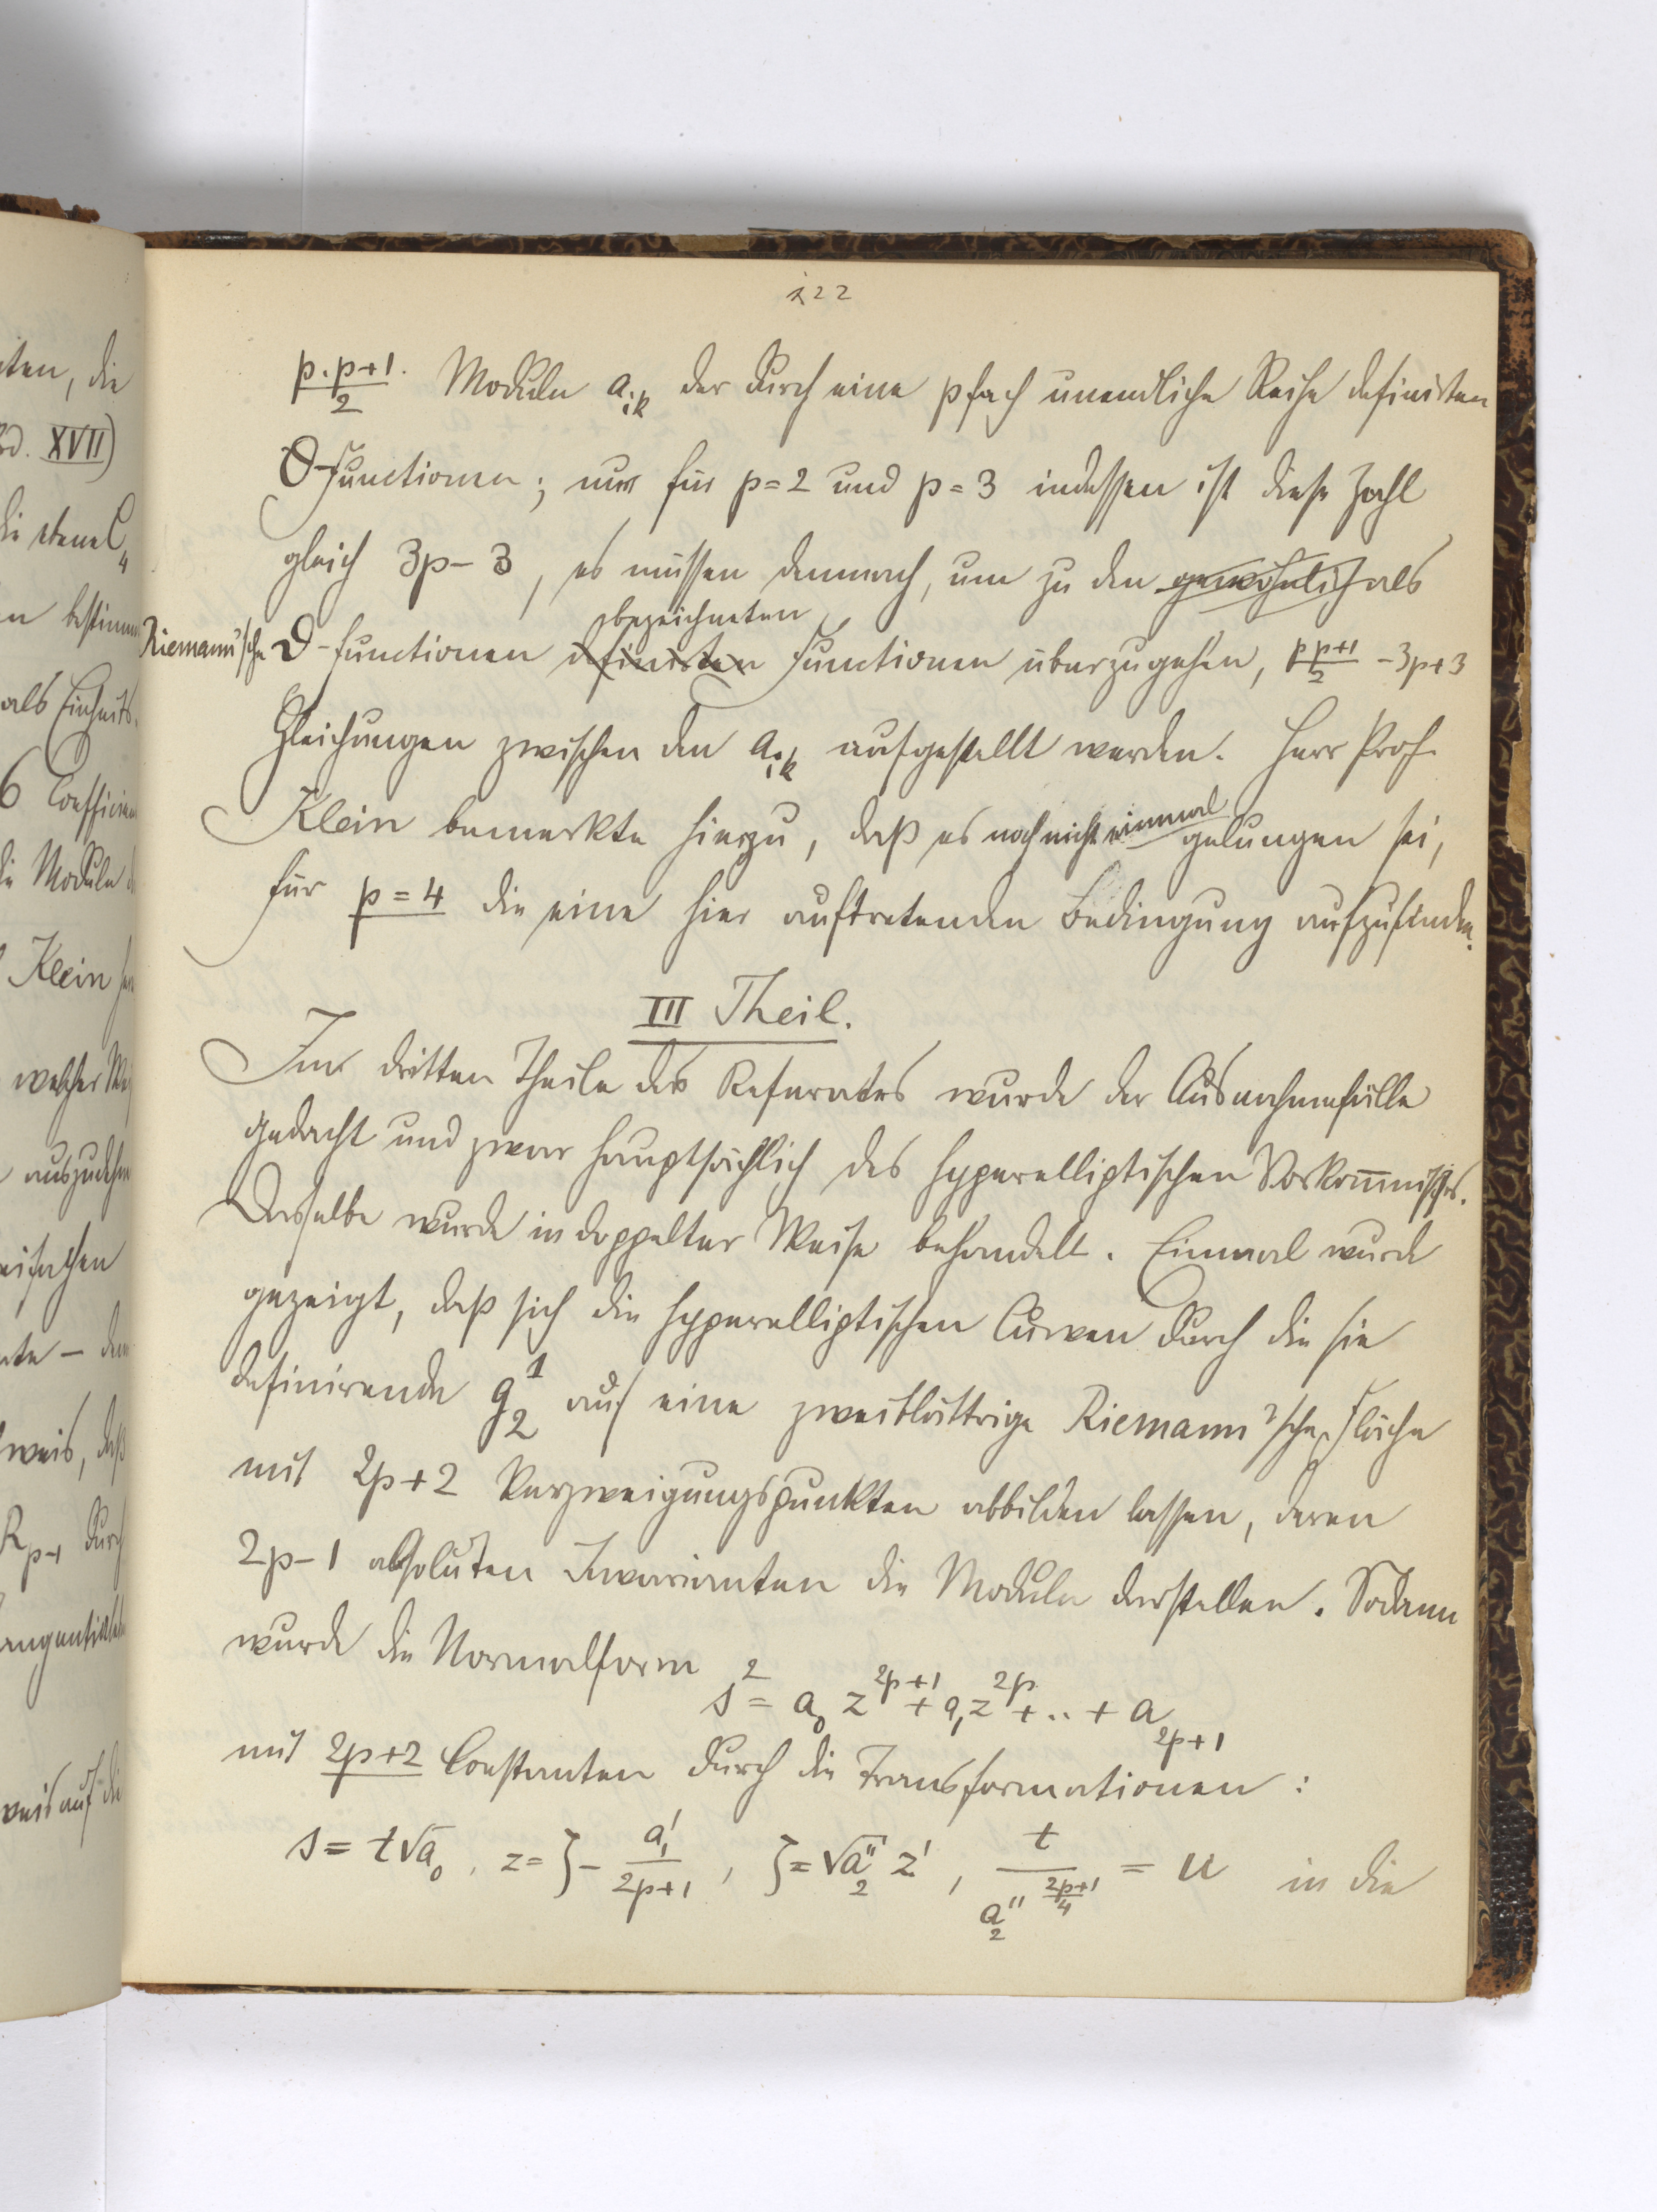 122
p.p+1/2 Moduln a_ik der durch eine pfach unendliche Reihe definirten
Θ-Functionen; nur für p=2 und p=3 indessen ist diese Zahl
gleich 3p-3, es müssen demnach, um zu den gewöhnlich als
bezeichneten
Riemann'sche ϑ-functionen definirten Functionen überzugehen, p p+1/2 -3p+3
Gleichungen zwischen den a_ik aufgestellt werden. Herr Prof.
Klein bemerkte hierzu, daß es noch nicht einmal gelungen sei,
für p=4 die eine hier auftretenden Bedingung aufzufinden.
III Theil.
Im dritten Theile des Referates wurde der Ausnahmefälle
gedacht und zwar hauptsächlich des hyperelliptischen Vorkommnisses.
Dasselbe wurde in doppelter Weise behandelt. Einmal wurde
gezeigt, daß sich die hyperelliptischen Curven durch die sie
definirende g_2^1 auf eine zweiblättrige Riemann'sche Fläche
mit 2p+2 Verzweigungspunkten abbilden lassen, deren
2p-1 absoluten Invarianten die Moduln darstellen. Sodann
wurde die Normalform
s^2 = a_0 z^{2p+1} + a_1 z^{2p} + .. + a_{2p+1}
mit 2p+2 Constanten durch die Transformationen:
s = t√a_0, z = ζ - a_1'/2p+1, ζ = √a_2'' z', t/a_2''^{2p+1/4} = u in die
iten, die
Bd. XVII)
die ebene C_4
n bestimm
als Einheits
6 Coefficien
die Moduln d
Klein
welcher
auszudehn
eifachen
weis, daß
R_{p-1} durch
weis auf die